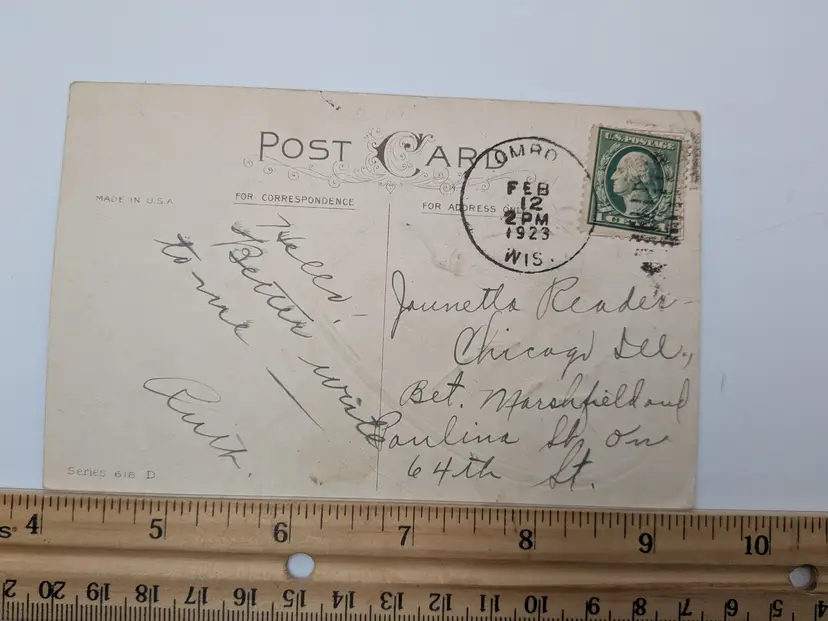 POST CARD
MADE IN U.S.A
FOR CORRESPONDENCE
FOR ADDRESS
OMRO
FEB
12
2 PM
1923
WIS.
U.S. POSTAGE
Hello. -
Better write
to me —
Ruth.
Jaunetta Reader -
Chicago Ill.,
Bet. Marshfield and
Paulina St. on
64th St.
Series 618 D
4 5 6 7 8 9 10
20 19 18 17 16 15 14 13 12 11 10 9 8 7 6 5 4